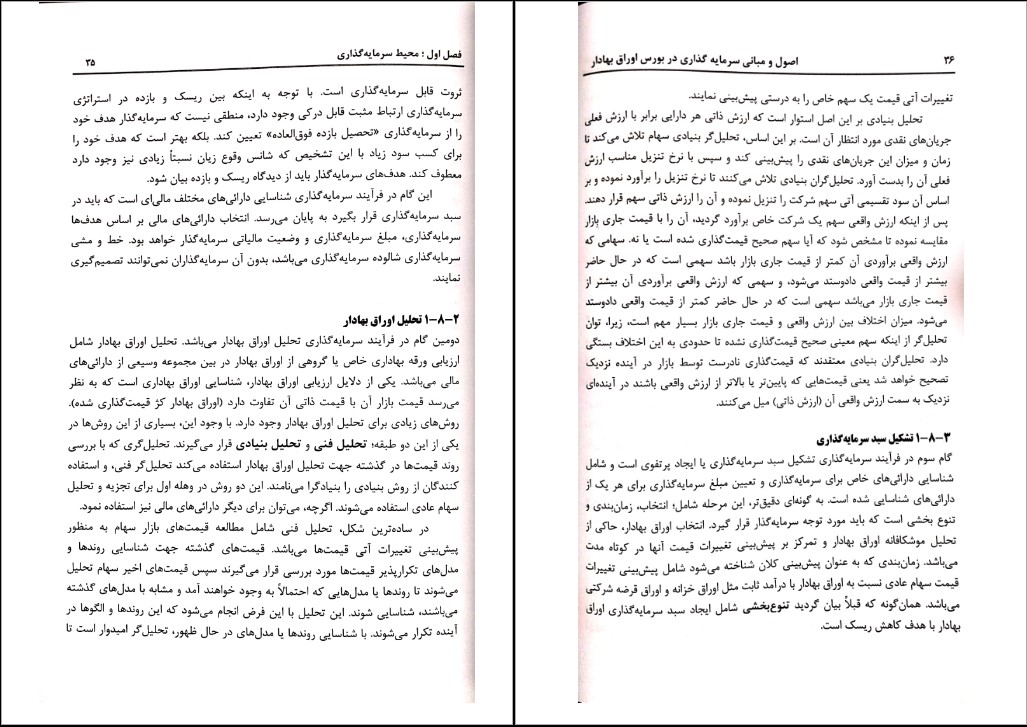 فصل اول ؛ محیط سرمایه‌گذاری
۳۵
ثروت قابل سرمایه‌گذاری است. با توجه به اینکه بین ریسک و بازده در استراتژی
سرمایه‌گذاری ارتباط مثبت قابل درکی وجود دارد، منطقی نیست که سرمایه‌گذار هدف خود
را از سرمایه‌گذاری «تحصیل بازده فوق‌العاده» تعیین کند. بلکه بهتر است که هدف خود را
برای کسب سود زیاد با این تشخیص که شانس وقوع زیان نسبتاً زیادی نیز وجود دارد
معطوف کند. هدف‌های سرمایه‌گذار باید از دیدگاه ریسک و بازده بیان شود.
این گام در فرآیند سرمایه‌گذاری شناسایی دارائی‌های مختلف مالی‌ای است که باید در
سبد سرمایه‌گذاری قرار بگیرد به پایان می‌رسد. انتخاب دارائی‌های مالی بر اساس هدف‌ها
سرمایه‌گذاری، مبلغ سرمایه‌گذاری و وضعیت مالیاتی سرمایه‌گذار خواهد بود. خط و مشی
سرمایه‌گذاری شالوده سرمایه‌گذاری می‌باشد، بدون آن سرمایه‌گذاران نمی‌توانند تصمیم‌گیری
نمایند.
۱-۸-۲ تحلیل اوراق بهادار
دومین گام در فرآیند سرمایه‌گذاری تحلیل اوراق بهادار می‌باشد. تحلیل اوراق بهادار شامل
ارزیابی ورقه بهاداری خاص یا گروهی از اوراق بهادار در بین مجموعه وسیعی از دارائی‌های
مالی می‌باشد. یکی از دلایل ارزیابی اوراق بهادار، شناسایی اوراق بهاداری است که به نظر
می‌رسد قیمت بازار آن با قیمت ذاتی آن تفاوت دارد (اوراق بهادار کژ قیمت‌گذاری شده).
روش‌های زیادی برای تحلیل اوراق بهادار وجود دارد. با وجود این، بسیاری از این روش‌ها در
یکی از این دو طبقه؛ تحلیل فنی و تحلیل بنیادی قرار می‌گیرند. تحلیل‌گری که با بررسی
روند قیمت‌ها در گذشته جهت تحلیل اوراق بهادار استفاده می‌کند تحلیل‌گر فنی، و استفاده
کنندگان از روش بنیادی را بنیادگرا می‌نامند. این دو روش در وهله اول برای تجزیه و تحلیل
سهام عادی استفاده می‌شوند. اگرچه، می‌توان برای دیگر دارائی‌های مالی نیز استفاده نمود.
در ساده‌ترین شکل، تحلیل فنی شامل مطالعه قیمت‌های بازار سهام به منظور
پیش‌بینی تغییرات آتی قیمت‌ها می‌باشد. قیمت‌های گذشته جهت شناسایی روندها و
مدل‌های تکرارپذیر قیمت‌ها مورد بررسی قرار می‌گیرند سپس قیمت‌های اخیر سهام تحلیل
می‌شوند تا روندها یا مدل‌هایی که احتمالاً به وجود خواهند آمد و مشابه با مدل‌های گذشته
می‌باشند، شناسایی شوند. این تحلیل با این فرض انجام می‌شود که این روندها و الگوها در
آینده تکرار می‌شوند. با شناسایی روندها یا مدل‌های در حال ظهور، تحلیل‌گر امیدوار است تا
۳۶
اصول و مبانی سرمایه گذاری در بورس اوراق بهادار
تغییرات آتی قیمت یک سهم خاص را به درستی پیش‌بینی نمایند.
تحلیل بنیادی بر این اصل استوار است که ارزش ذاتی هر دارایی برابر با ارزش فعلی
جریان‌های نقدی مورد انتظار آن است. بر این اساس، تحلیل‌گر بنیادی سهام تلاش می‌کند تا
زمان و میزان این جریان‌های نقدی را پیش‌بینی کند و سپس با نرخ تنزیل مناسب ارزش
فعلی آن را بدست آورد. تحلیل‌گران بنیادی تلاش می‌کنند تا نرخ تنزیل را برآورد نموده و بر
اساس آن سود تقسیمی آتی سهم شرکت را تنزیل نموده و آن را ارزش ذاتی سهم قرار دهند.
پس از اینکه ارزش واقعی سهم یک شرکت خاص برآورد گردید، آن را با قیمت جاری بازار
مقایسه نموده تا مشخص شود که آیا سهم صحیح قیمت‌گذاری شده است یا نه. سهامی که
ارزش واقعی برآوردی آن کمتر از قیمت جاری بازار باشد سهمی است که در حال حاضر
بیشتر از قیمت واقعی دادوستد می‌شود، و سهمی که ارزش واقعی برآوردی آن بیشتر از
قیمت جاری بازار می‌باشد سهمی است که در حال حاضر کمتر از قیمت واقعی دادوستد
می‌شود. میزان اختلاف بین ارزش واقعی و قیمت جاری بازار بسیار مهم است، زیرا، توان
تحلیل‌گر از اینکه سهم معینی صحیح قیمت‌گذاری نشده تا حدودی به این اختلاف بستگی
دارد. تحلیل‌گران بنیادی معتقدند که قیمت‌گذاری نادرست توسط بازار در آینده نزدیک
تصحیح خواهد شد یعنی قیمت‌هایی که پایین‌تر یا بالاتر از ارزش واقعی باشند در آینده‌ای
نزدیک به سمت ارزش واقعی آن (ارزش ذاتی) میل می‌کنند.
۱-۸-۳ تشکیل سبد سرمایه‌گذاری
گام سوم در فرآیند سرمایه‌گذاری تشکیل سبد سرمایه‌گذاری یا ایجاد پرتفوی است و شامل
شناسایی دارائی‌های خاص برای سرمایه‌گذاری و تعیین مبلغ سرمایه‌گذاری برای هر یک از
دارائی‌های شناسایی شده است. به گونه‌ای دقیق‌تر، این مرحله شامل؛ انتخاب، زمان‌بندی و
تنوع بخشی است که باید مورد توجه سرمایه‌گذار قرار گیرد. انتخاب اوراق بهادار، حاکی از
تحلیل موشکافانه اوراق بهادار و تمرکز بر پیش‌بینی تغییرات قیمت آنها در کوتاه مدت
می‌باشد. زمان‌بندی که به عنوان پیش‌بینی کلان شناخته می‌شود شامل پیش‌بینی تغییرات
قیمت سهام عادی نسبت به اوراق بهادار با درآمد ثابت مثل اوراق خزانه و اوراق قرضه شرکتی
می‌باشد. همان‌گونه که قبلاً بیان گردید تنوع‌بخشی شامل ایجاد سبد سرمایه‌گذاری اوراق
بهادار با هدف کاهش ریسک است.